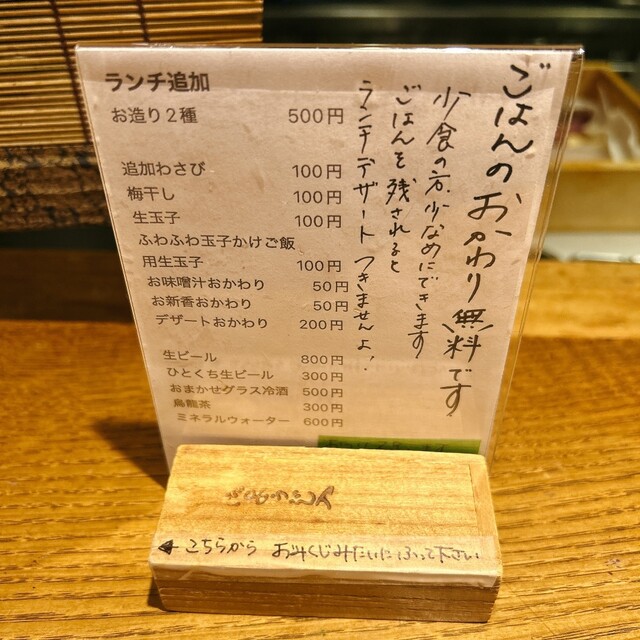 ごはんのおかわり無料です
少食の方、少なめにできます
ごはんを残されると
ランチデザートつきませんよ!
ランチ追加
お造り2種 500円
追加わさび 100円
梅干し 100円
生玉子 100円
ふわふわ玉子かけご飯
用生玉子 100円
お味噌汁おかわり 50円
お新香おかわり 50円
デザートおかわり 200円
生ビール 800円
ひとくち生ビール 300円
おまかせグラス冷酒 500円
烏龍茶 300円
ミネラルウォーター 600円
こちらから おみくじみたいにふって下さい